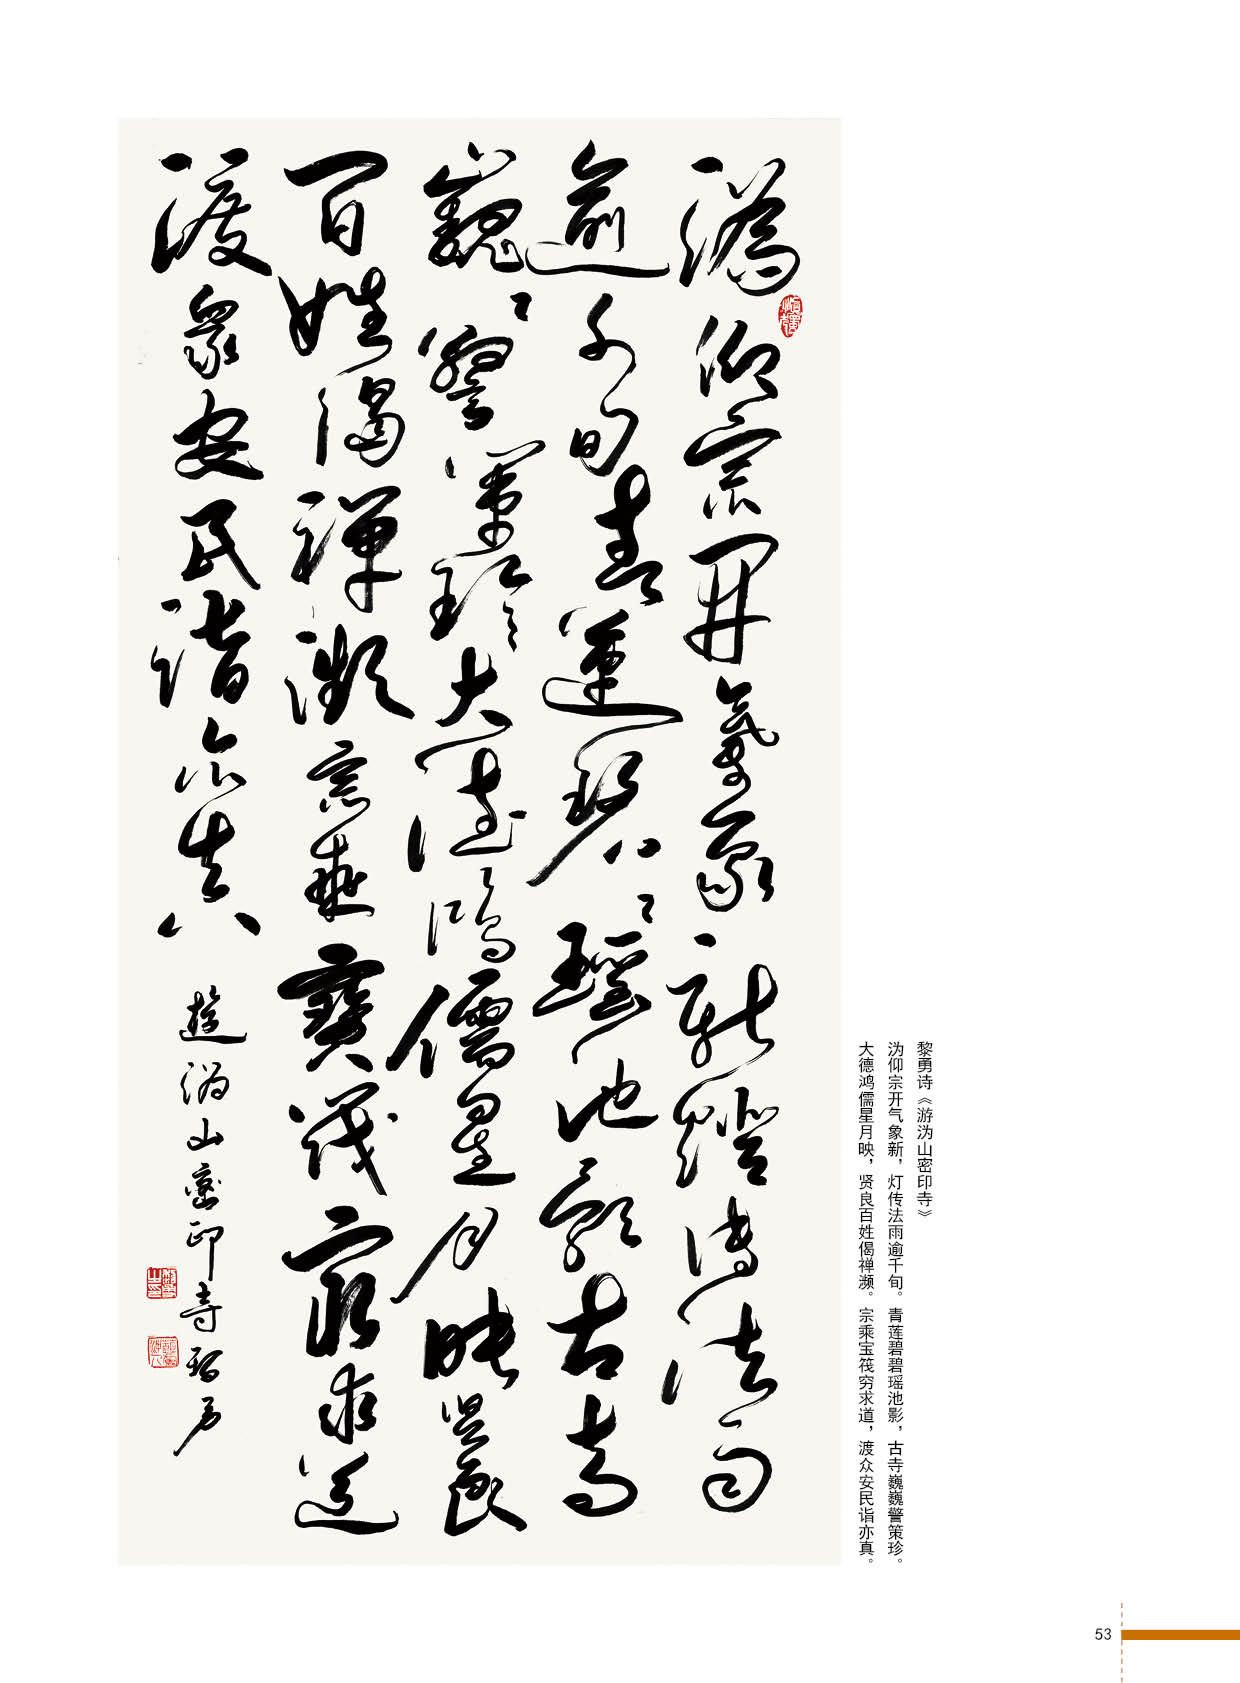 溈仰宗開氣象新燈傳法雨
逾千旬青蓮碧〻瑶池影古寺
巍〻警策珍大德鴻儒星月映賢良
百姓偈禪瀕宗乘寶筏窮求道
渡眾安民詣亦真
遊溈山密印寺黎勇
黎勇诗《游沩山密印寺》
沩仰宗开气象新，灯传法雨逾千旬。青莲碧碧瑶池影，古寺巍巍警策珍。
大德鸿儒星月映，贤良百姓偈禅濒。宗乘宝筏穷求道，渡众安民诣亦真。
53